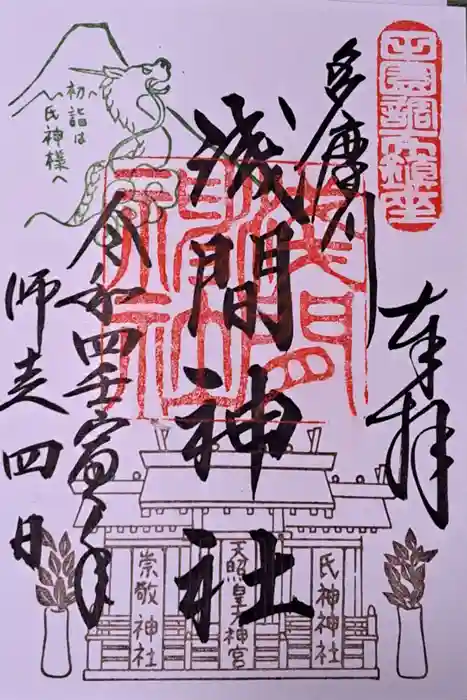 田園調布鎮座
奉拝
多摩川
浅間神社
令和四壬寅年
師走四日
初詣は
氏神様へ
氏神神社
天照皇大神宮
崇敬神社